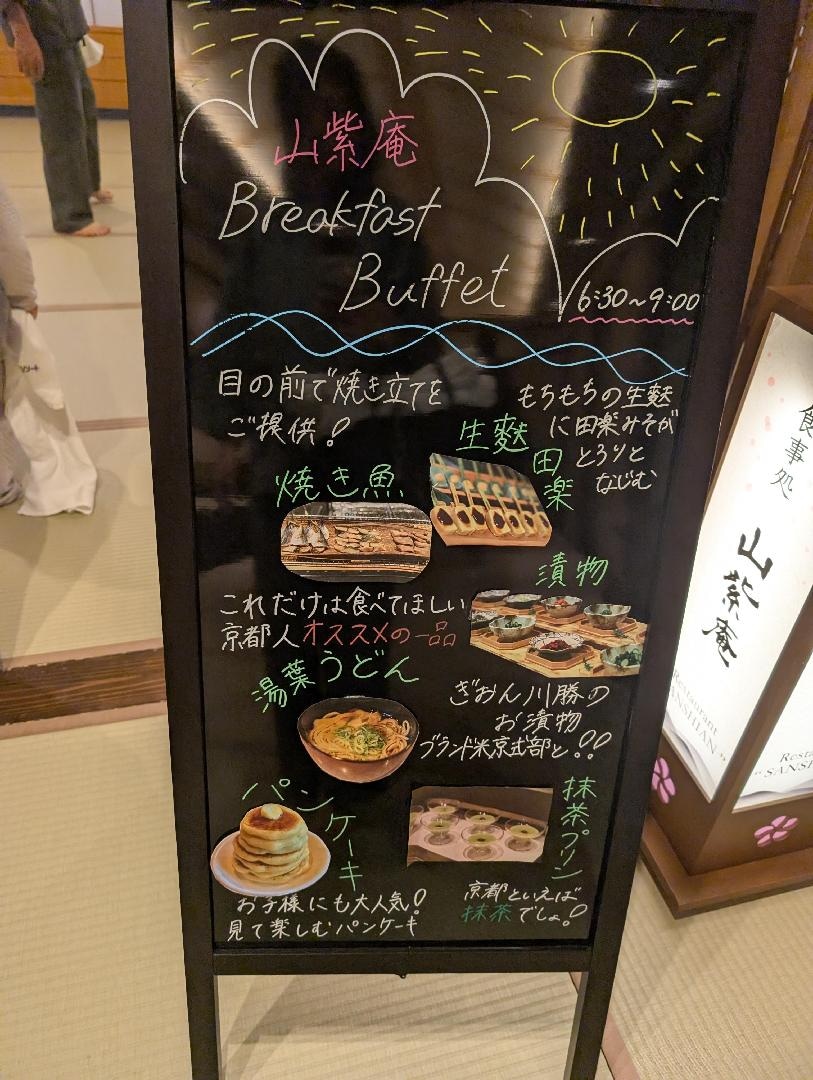 山紫庵
Breakfast
Buffet
6:30~9:00
目の前で焼き立てを
ご提供!
焼き魚
もちもちの生麩
に田楽みそが
とろりと
なじむ
生麩田楽
漬物
これだけは食べてほしい
京都人オススメの一品
湯葉うどん
ぎおん川勝の
お漬物
ブランド米京式部と!!
パンケーキ
お子様にも大人気!
見て楽しむパンケーキ
抹茶プリン
京都といえば
抹茶でしょ!
食事処
山紫庵
Restaurant